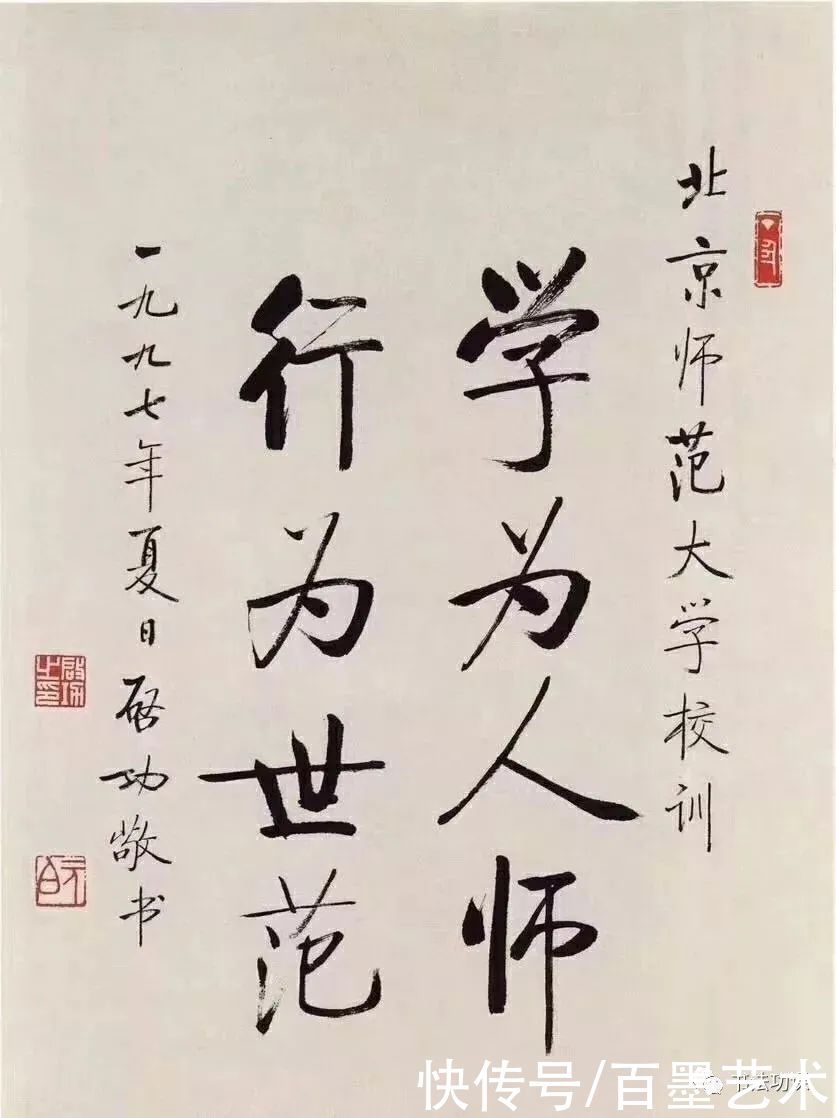 北京师范大学校训
学为人师
行为世范
一九九七年夏日启功敬书
启功之印
元白
快传号/百墨艺术